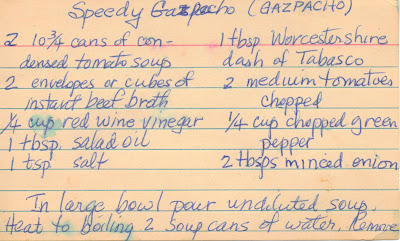 Speedy Gazpacho (GAZPACHO)
2 10 3/4 cans of con-
densed tomato soup
2 envelopes or cubes of
instant beef broth
1/4 cup red wine vinegar
1 tbsp. salad oil
1 tsp salt
1 tbsp Worcestershire
dash of Tabasco
2 medium tomatoes
chopped
1/4 cup chopped green
pepper
2 tbsps minced onion
In large bowl pour undiluted soup.
Heat to boiling 2 soup cans of water. Remove